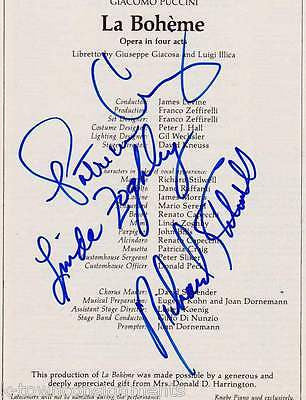 GIACOMO PUCCINI
La Bohème
Opera in four acts
Libretto by Giuseppe Giacosa and Luigi Illica
Conductor James Levine
Production Franco Zeffirelli
Set Designer Franco Zeffirelli
Costume Designer Peter J. Hall
Lighting Designer Gil Wechsler
Stage Director David Kneuss
characters in order of vocal appearance:
Richard Stilwell
James
Mario Sere
Benoit Renato Capecchi
Mimi Linda Zoghby
Parpignol John
Alcindoro Renato Capecchi
Musetta Patricia Craig
Customhouse Sergeant Peter Sliker
Customhouse Officer Donald Peck
Patricia Craig
Linda Zoghby
Richard Stilwell
Chorus Master David Stivender
Musical Preparation Eugene Kohn and Joan Dornemann
Assistant Stage Director Koenig
Stage Band Conductor Gildo Di Nunzio
Prompter Joan Dornemann
This production of La Bohème was made possible by a generous and
deeply appreciated gift from Mrs. Donald D. Harrington.
Knabe Piano used exclusively.